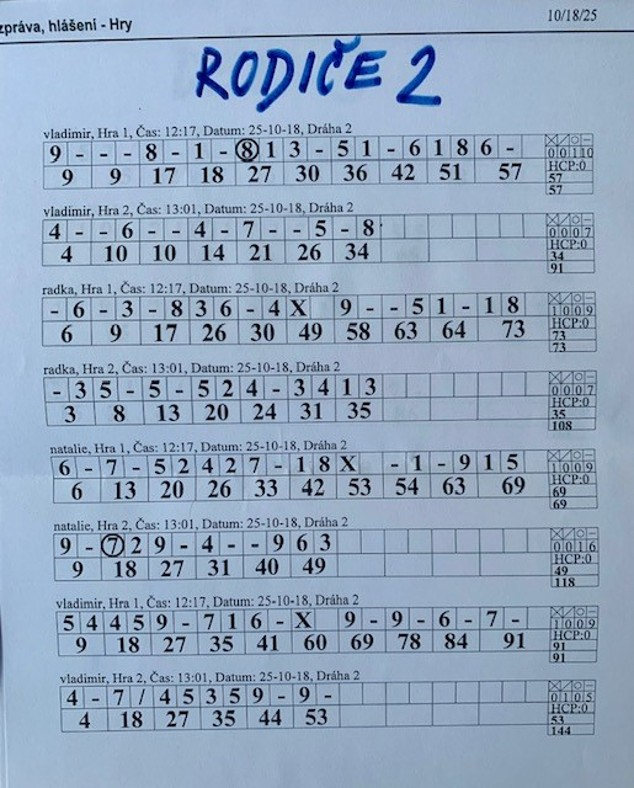 zpráva, hlášení - Hry 10/18/25
RODIČE 2
vladimir, Hra 1, Čas: 12:17, Datum: 25-10-18, Dráha 2
9 - - - 8 - 1 - 8 1 3 - 5 1 - 6 1 8 6 -
9 9 17 18 27 30 36 42 51 57
X / O -
0 0 1 10
HCP:0
57
57
vladimir, Hra 2, Čas: 13:01, Datum: 25-10-18, Dráha 2
4 - - 6 - - 4 - 7 - - 5 - 8
4 10 10 14 21 26 34
X / O -
0 0 0 7
HCP:0
34
91
radka, Hra 1, Čas: 12:17, Datum: 25-10-18, Dráha 2
- 6 - 3 - 8 3 6 - 4 X 9 - - 5 1 - 1 8
6 9 17 26 30 49 58 63 64 73
X / O -
1 0 0 9
HCP:0
73
73
radka, Hra 2, Čas: 13:01, Datum: 25-10-18, Dráha 2
- 3 5 - 5 - 5 2 4 - 3 4 1 3
3 8 13 20 24 31 35
X / O -
0 0 0 7
HCP:0
35
108
natalie, Hra 1, Čas: 12:17, Datum: 25-10-18, Dráha 2
6 - 7 - 5 2 4 2 7 - 1 8 X - 1 - 9 1 5
6 13 20 26 33 42 53 54 63 69
X / O -
1 0 0 9
HCP:0
69
69
natalie, Hra 2, Čas: 13:01, Datum: 25-10-18, Dráha 2
9 - 7 2 9 - 4 - - 9 6 3
9 18 27 31 40 49
X / O -
0 0 1 6
HCP:0
49
118
vladimir, Hra 1, Čas: 12:17, Datum: 25-10-18, Dráha 2
5 4 4 5 9 - 7 1 6 - X 9 - 9 - 6 - 7 -
9 18 27 35 41 60 69 78 84 91
X / O -
1 0 0 9
HCP:0
91
91
vladimir, Hra 2, Čas: 13:01, Datum: 25-10-18, Dráha 2
4 - 7 / 4 5 3 5 9 - 9 -
4 18 27 35 44 53
X / O -
0 1 0 5
HCP:0
53
144